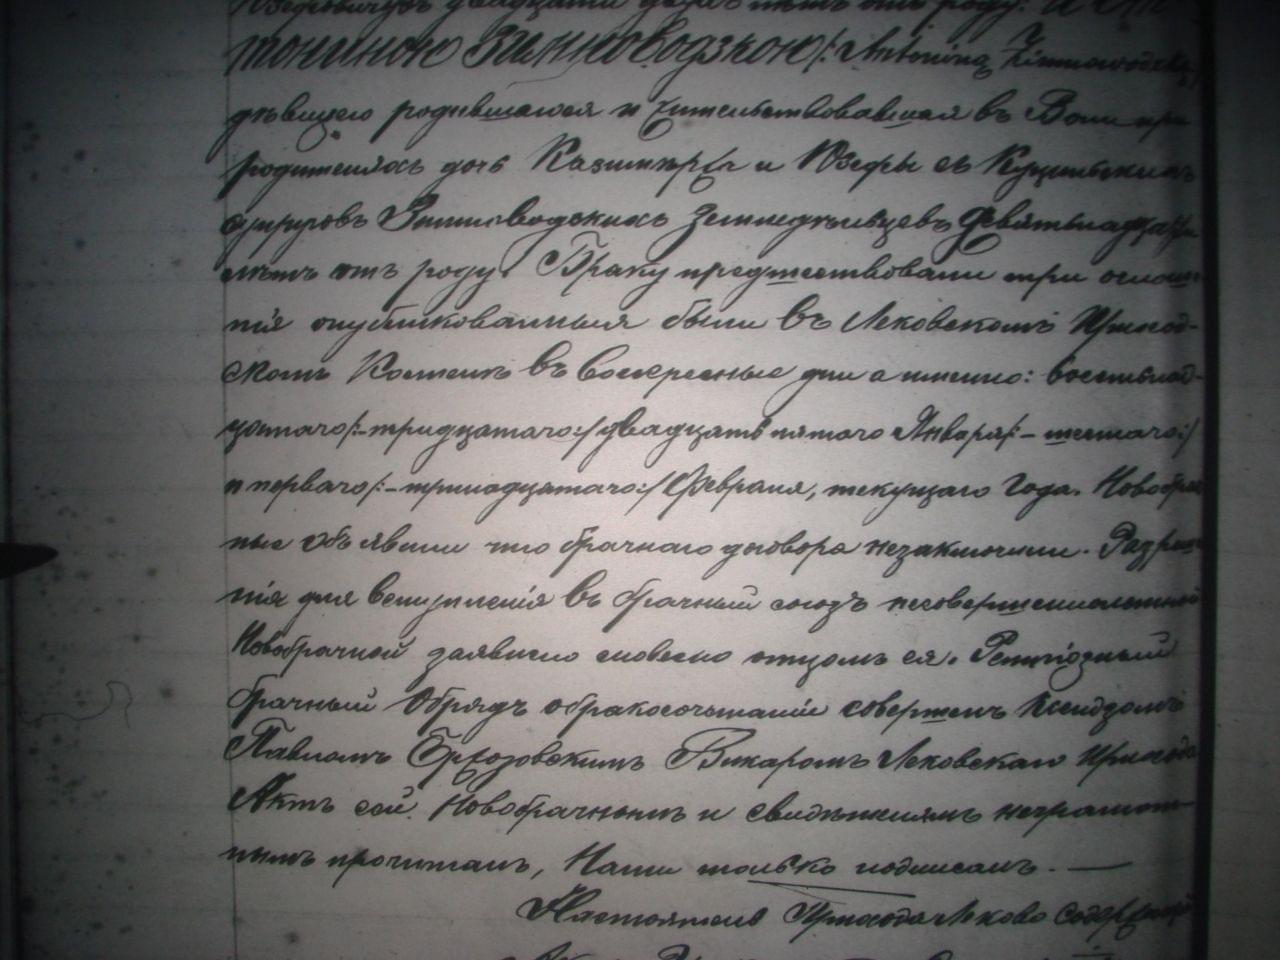 двадцати девять лѣтъ отъ роду. и Ан-
тониною Зимноводзкою /: Antonina Zimnowodzka
дѣвицею родившаюся и жительствовавшая въ Воли при
родителяхъ дочь Казимѣра и Юзефы съ
супруговъ Зимноводскихъ Земледѣльцевъ девятьнадцати
лѣтъ отъ роду. Браку предшествовали три оглаше-
нія опубликованныя были въ Лековскомъ Приход-
скомъ Костелѣ въ воскресные дни а именно: восемьнад-
цатаго /:-тридцатаго:/ двадцать пятаго Января /:- шестаго:/
и перваго /:-тринадцатаго:/ Февраля, текущаго Года. Новобрач-
ные объявили что брачнаго договора незаключили. Разрѣше-
нія для вступленія въ брачный союзъ несовершеннолетней
Новобрачной заявлено словесно отцомъ ея. Религіозный
брачный Обрядъ обракосочетаніи совершенъ Ксендзомъ
Павломъ Бржозовскимъ Викаромъ Лековскаго Прихода
Актъ сей Новобрачнымъ и свидѣтелямъ неграмот-
нымъ прочитанъ, Нами только подписанъ. —
Настоятель Прихода Леково Содержащій